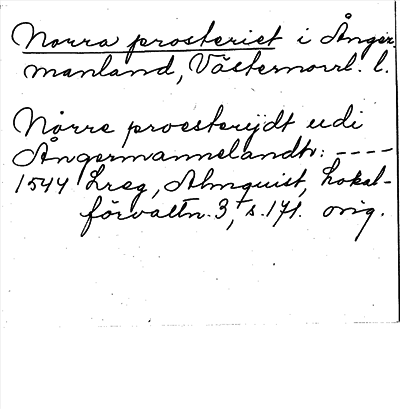 Norra prosteriet i Ånger-
manland, Västernorrl. l.
Nørre proesterijdt udi
Ångermannelandtz: ----
1544 Lreg, Almquist, Lokal-
förvaltn. 3, s. 171. orig.